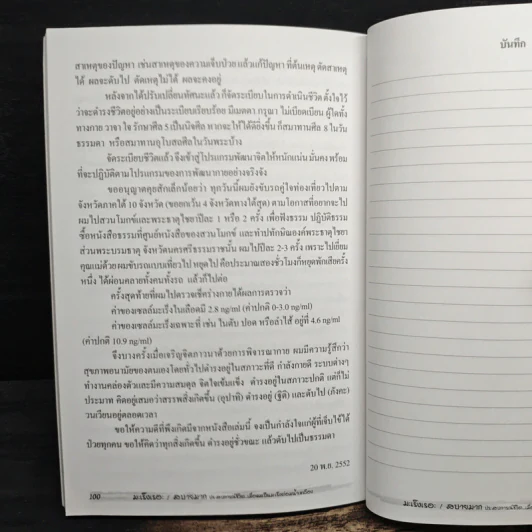 สาเหตุของปัญหา เช่นสาเหตุของความเจ็บป่วย แล้วแก้ปัญหา ที่ต้นเหตุ ตัดสาเหตุ
ได้ ผลจะดับไป ตัดเหตุไม่ได้ ผลจะคงอยู่
หลังจากได้ปรับเปลี่ยนทัศนะแล้ว ก็จัดระเบียบในการดำเนินชีวิต ตั้งใจไว้
ว่าจะดำรงชีวิตอยู่อย่างเป็นระเบียบเรียบร้อย มีเมตตา กรุณา ไม่เบียดเบียน ผู้ใดทั้ง
ทางกาย วาจา ใจ รักษาศีล 5 เป็นนิจศีล หากจะให้ได้ดียิ่งขึ้น ก็สมาทานศีล 8 ในวัน
ธรรมดา หรือสมาทานอุโบสถศีลในวันพระบ้าง
จัดระเบียบชีวิตแล้ว จึงเข้าสู่โปรแกรมพัฒนาจิตให้หนักแน่น มั่นคง พร้อม
ที่จะปฏิบัติตามโปรแกรมของการพัฒนากายอย่างจริงจัง
ขออนุญาตคุยสักเล็กน้อยว่า ทุกวันนี้ผมยังขับรถคู่ใจท่องเที่ยวไปตาม
จังหวัดภาคใต้ 10 จังหวัด (ขอยกเว้น 4 จังหวัดทางใต้สุด) ตามโอกาสที่ออกจะไป
ผมไปสวนโมกข์และพระธาตุไชยาปีละ 1 หรือ 2 ครั้ง เพื่อฟังธรรม ปฏิบัติธรรม
ซื้อหนังสือธรรมที่ศูนย์หนังสือของสวนโมกข์ และทำปทักษิณองค์พระธาตุไชยา
ส่วนพระบรมธาตุ จังหวัดนครศรีธรรมราชนั้น ผมไปปีละ 2-3 ครั้ง เพราะไปเยี่ยม
คุณแม่ด้วย ผมขับรถแบบเที่ยวไป หยุดไป คือประมาณสองชั่วโมงก็หยุดพักเสียครั้ง
หนึ่ง ได้ผ่อนคลายทั้งคนทั้งรถ แล้วก็ไปต่อ
ครั้งสุดท้ายที่ผมไปตรวจเช็คร่างกายได้ผลการตรวจว่า
ค่าของเซลล์มะเร็งในเลือดมี 2.8 ng/ml (ค่าปกติ 0-3.0 ng/ml)
ค่าของเซลล์มะเร็งเฉพาะที่ เช่น ในตับ ปอด หรือลำไส้ อยู่ที่ 4.6 ng/ml
(ค่าปกติ 10.9 ng/ml)
จึงบางครั้งเมื่อเจริญจิตภาวนาด้วยการพิจารณากาย ผมมีความรู้สึกว่า
สุขภาพอนามัยของตนเองโดยทั่วไปดำรงอยู่ในสภาวะที่ดี กำลังกายดี ระบบต่างๆ
ทำงานคล่องตัวและมีความสมดุล จิตใจเข้มแข็ง ดำรงอยู่ในสภาวะปกติ แต่ก็ไม่
ประมาท คิดอยู่เสมอว่าสรรพสิ่งเกิดขึ้น (อุปาทิ) ดำรงอยู่ (ฐิติ) และดับไป (ภังคะ)
วนเวียนอยู่ตลอดเวลา
ขอให้ความดีที่พึงเกิดมีจากหนังสือเล่มนี้ จงเป็นกำลังใจแก่ผู้ที่เจ็บไข้ได้
ป่วยทุกคน ขอให้คิดว่าทุกสิ่งเกิดขึ้น ดำรงอยู่ชั่วขณะ แล้วดับไปเป็นธรรมดา
20 พ.ย. 2552
100 มะเร็งเรอะ / สบายมาก
บันทึก
มะเร็งเรอะ / สบายมาก